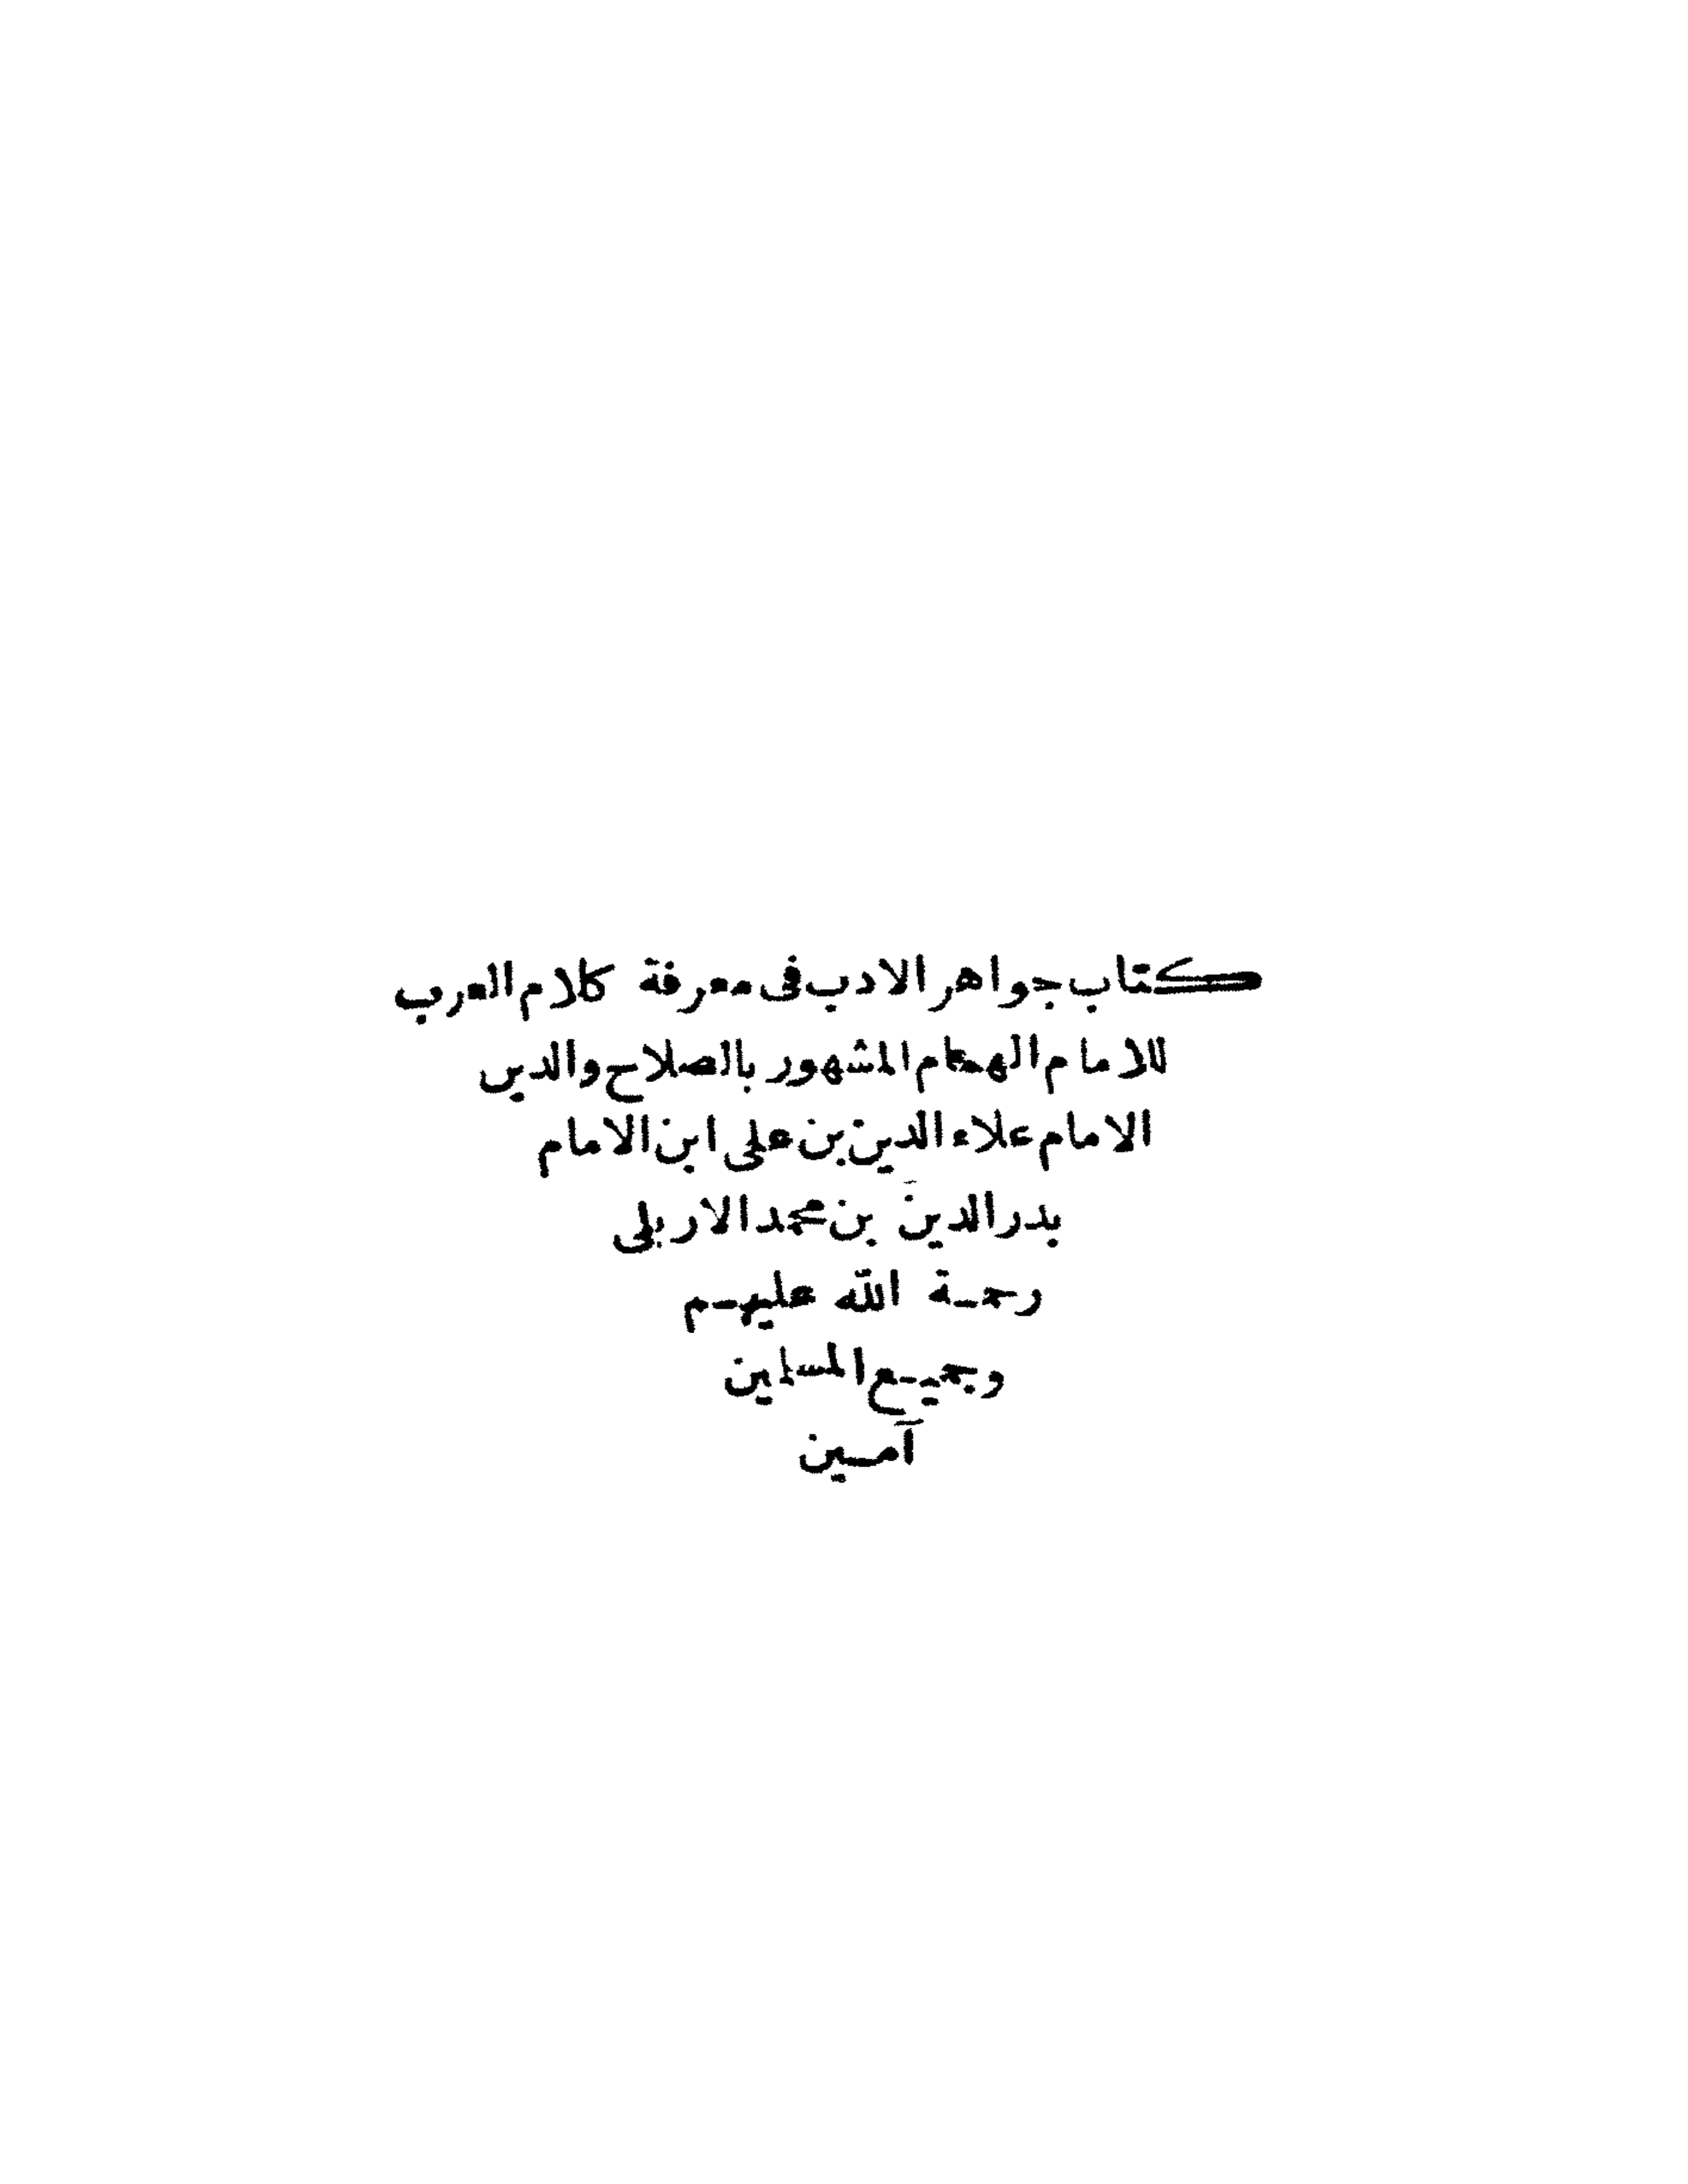 كتاب جواهر الادب فى معرفة كلام العرب
للامام الهمام المشهور بالصلاح والدين
الامام علاء الدين بن على ابن الامام
بدر الدين بن محمد الاربلى
رحمة الله عليهم
وجميع المسلمين
آمين